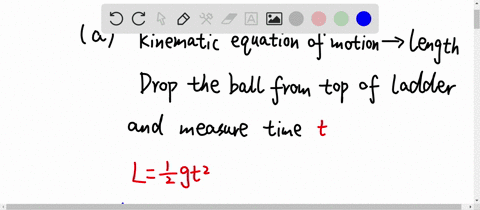 (a) Kinematic equation of motion → length
Drop the ball from top of ladder
and measure time t
L=½gt²